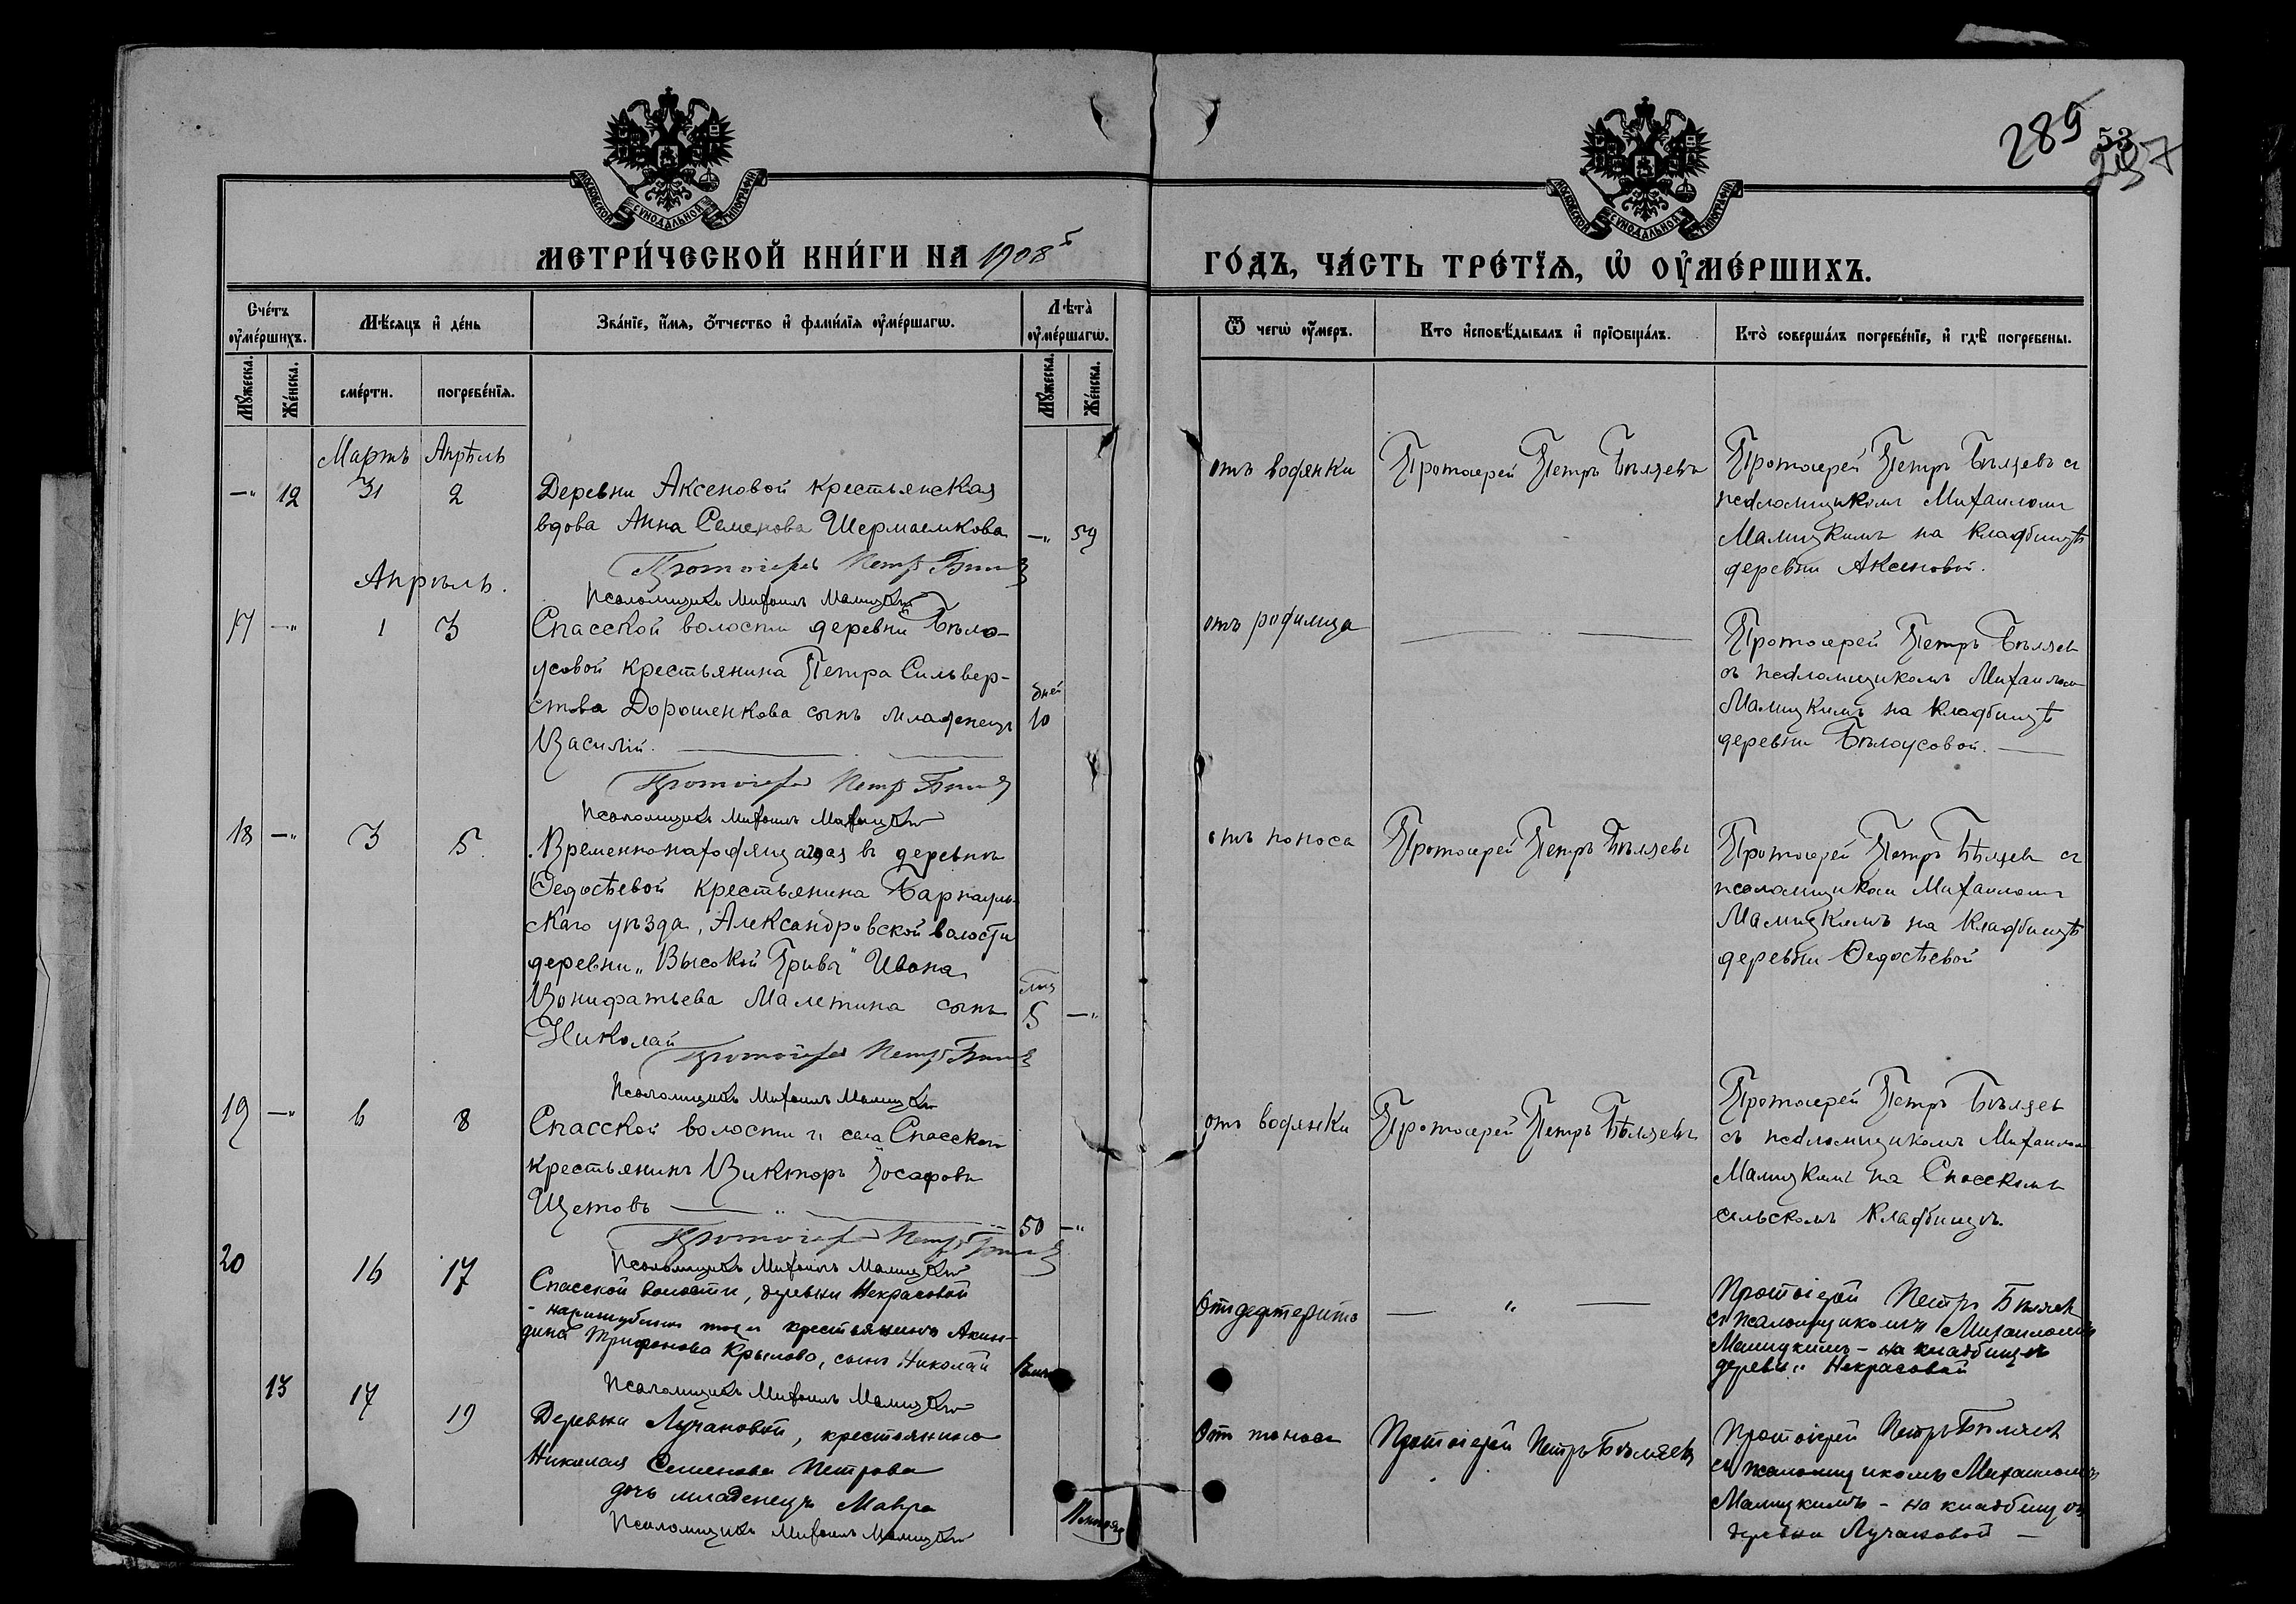 285
53
297
МОСКОВСКОЙ СѴНОДАЛЬНОЙ ТИПОГРАФІИ
МОСКОВСКОЙ СѴНОДАЛЬНОЙ ТИПОГРАФІИ
МЕТРИ́ЧЕСКОЙ КНИ́ГИ НА 1908 й
ГО́ДЪ, ЧА́СТЬ ТРЕ́ТІЯ, Ѡ ОУ҆МЕ́РШИХЪ.
Сче́тъ оу҆ме́ршихъ.
Мѣ́сяцъ и҆ де́нь
Зва́нїе, и҆́мя, ѻ҆́тчество и҆ фами́лїя оу҆ме́ршагѡ.
Лѣта̀ оу҆ме́ршагѡ.
Ѿ чегѡ̀ оу҆́меръ.
Кто и҆сповѣ́дывалъ и҆ прїѡбща́лъ.
Кто̀ соверша́лъ погребе́нїе, и҆ гдѣ̀ погребены.
Мꙋ́жеска.
Же́нска.
сме́рти.
погребе́нїя.
Мꙋ́жеска.
Же́нска.
Мартъ Апрѣль
—„ 12 31 2
Деревни Аксеновой крестьянская
вдова Анна Семенова Шермаемкова
—„ 59
Протоіерей Петръ Бѣляевъ
Псаломщикъ Михаилъ Малицкій
отъ водянки
Протоіерей Петръ Бѣляевъ
Протоіерей Петръ Бѣляевъ съ
псаломщикомъ Михаиломъ
Малицкимъ на кладбищѣ
деревни Аксеновой.
Апрѣль.
17 —„ 1 3
Спасской волости деревни Бѣло-
усовой крестьянина Петра Сильвер-
стова Дорошенкова сынъ младенецъ
Василій.
дней
10
Протоіерей Петръ Бѣляевъ
Псаломщикъ Михаилъ Малицкій
отъ родимца
— „ —
Протоіерей Петръ Бѣляевъ
съ псаломщикомъ Михаиломъ
Малицкимъ на кладбищѣ
деревни Бѣлоусовой. —
18 —„ 3 5.
Временнонаходящагося въ деревнѣ
Ѳедосѣевой крестьянина Барнауль-
скаго уѣзда, Александровской волости
деревни „Высокой Гривы“ Ивана
Вонифатьева Малетина сынъ
Николай
5 —„
Протоіерей Петръ Бѣляевъ
Псаломщикъ Михаилъ Малицкій
отъ поноса
Протоіерей Петръ Бѣляевъ
Протоіерей Петръ Бѣляевъ съ
псаломщикомъ Михаиломъ
Малицкимъ на кладбищѣ
деревни Ѳедосѣевой
19 —„ 6 8
Спасской волости и села Спасскаго
крестьянинъ Викторъ Іосафовъ
Щетовъ — „ —
50 —„
Протоіерей Петръ Бѣляевъ
Псаломщикъ Михаилъ Малицкій
отъ водянки
Протоіерей Петръ Бѣляевъ
Протоіерей Петръ Бѣляевъ
съ псаломщикомъ Михаиломъ
Малицкимъ на Спасскомъ
сельскомъ кладбищѣ.
20 16 17
Спасской волости, деревни Некрасовой
крестьянина Акин-
дина Трифонова Крылова, сынъ Николай
Псаломщикъ Михаилъ Малицкій
Отъ дефтерита
— „ —
Протоіерей Петръ Бѣляевъ
съ псаломщикомъ Михаиломъ
Малицкимъ – на кладбищѣ
деревни Некрасовой
13 17 19
Деревни Лучановой, крестьянина
Николая Семенова Петрова
дочь младенецъ Мавра
Псаломщикъ Михаилъ Малицкій
Отъ поноса
Протоіерей Петръ Бѣляевъ
Протоіерей Петръ Бѣляевъ
съ псаломщикомъ Михаиломъ
Малицкимъ – на кладбищѣ
деревни Лучановой –